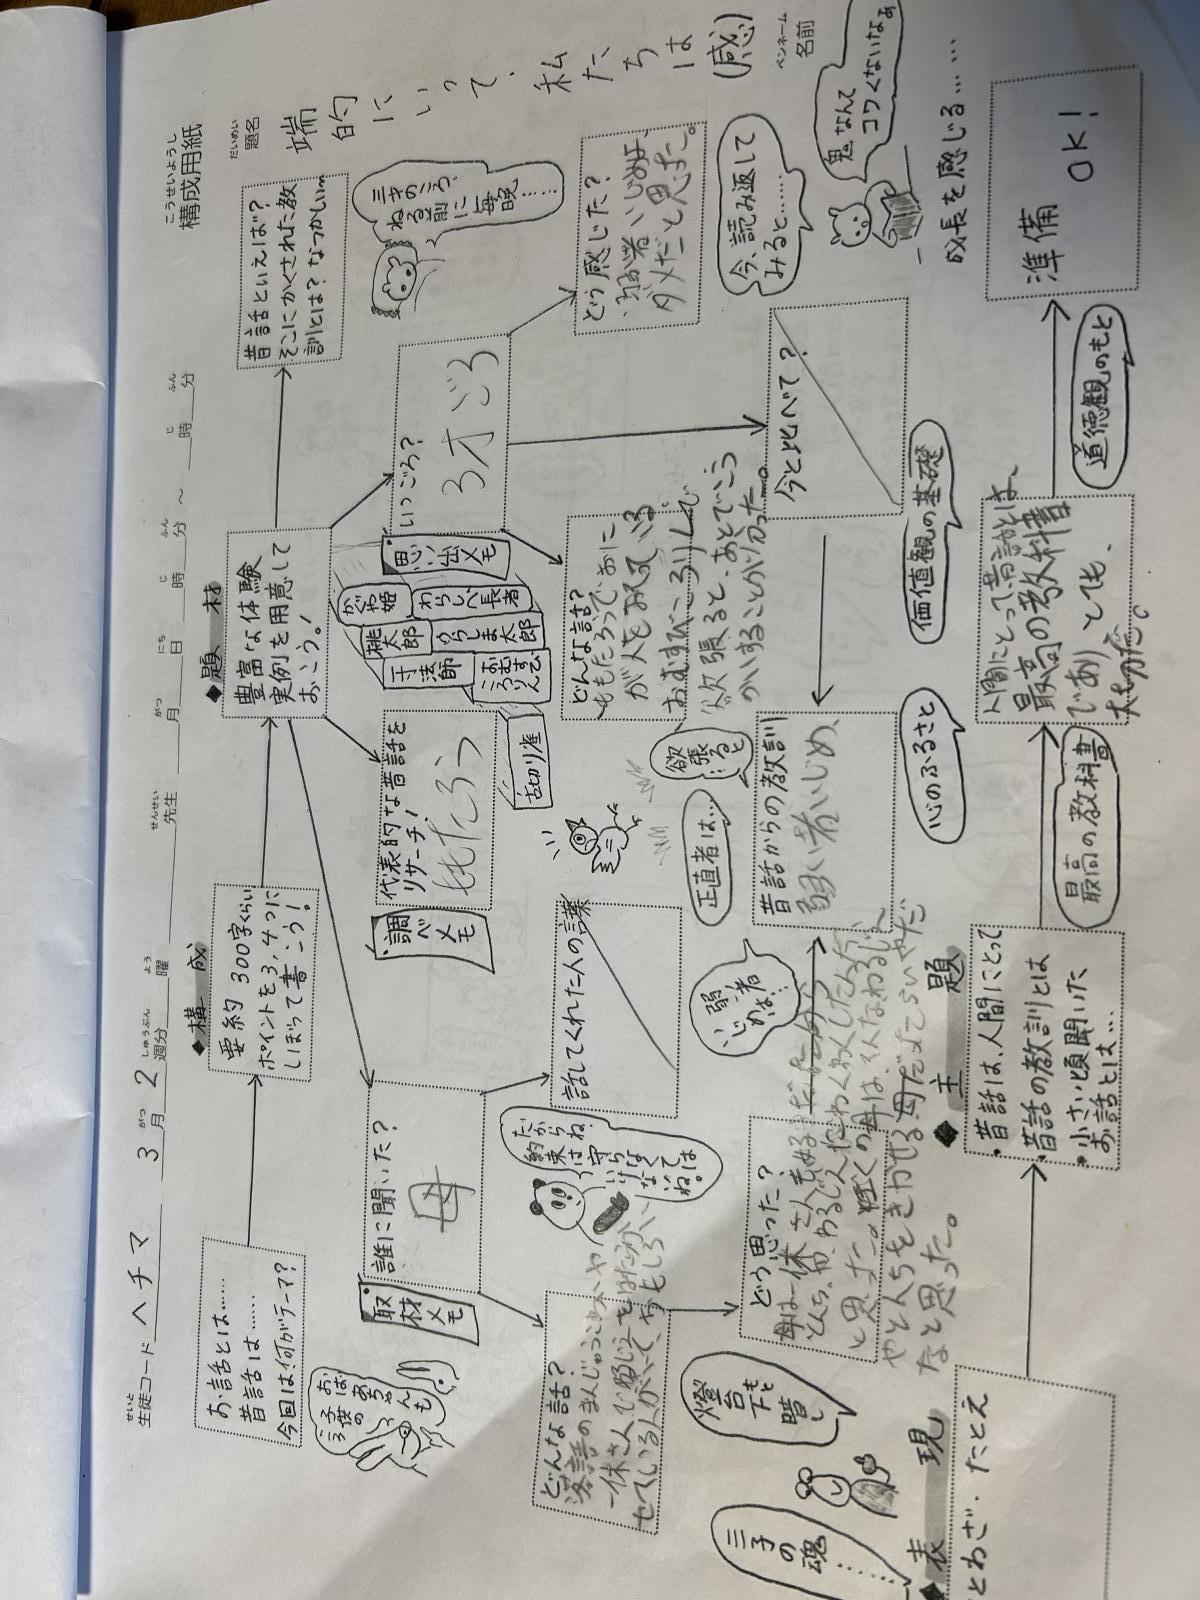 こうせいようし
構成用紙
せいと
生徒コード ヘチマ 3月 2週分 曜 先生 月 日 時 分 ～ 時 分
がつ しゅうぶん よう せんせい がつ にち じ ふん じ ふん
だいめい
題名
端的にいって、私たちは(感)
ペンネーム
名前
お話とは……
昔話は……
今回は何がテーマ?
◆構 成
要約 300字くらい
ポイントを3,4つに
しぼって書こう!
◆題 材
豊富な体験
実例を用意して
おこう!
昔話といえば?
そこにかくされた教
訓とは?なつかしい…
おばあちゃんも
子供の
取材メモ
誰に聞いた?
母
調べメモ
代表的な昔話を
リサーチ!
ももたろう
かぐや姫
わらしべ長者
桃太郎
うらしま太郎
一寸法師
おむすびころりん
舌切り雀
思い出メモ
いつごろ?
3才ごろ
三才のころ、
ねる前に
毎晩
……
どんな話?
落語のまんじゅうこわいや
話してくれた人の言葉
だからね、
約束は守らなくて
はいけないね。
どんな話?
ももたろうで、おに
おむすびころりんで
欲張ると、あとでこう
かいすることが分かった。
どう感じた?
弱い者いじめは、
ダメだと思った。
どう思った?
母は一休さん
と思った。
やとんちをきかせる
なと思った。
弱い者
いじめは…
正直者は…
欲張ると
…
昔話からの教訓
弱い者いじめ、
今と比べて?
今、読み返して
みると……
鬼なんて
コワくないなぁ
―成長を感じる……
燈台
下もと
暗し
三子の魂
……
◆表 現
ことわざ・たとえ
◆主 題
・昔話は、人間にとって
・昔話の教訓とは
・小さい頃聞いた
お話とは…
心のふるさと
価値観の基礎
最高の教科書
人間にとって昔話とは、
最高の教科書
であり、とても、
大切だ。
道徳観のもと
準備
OK!